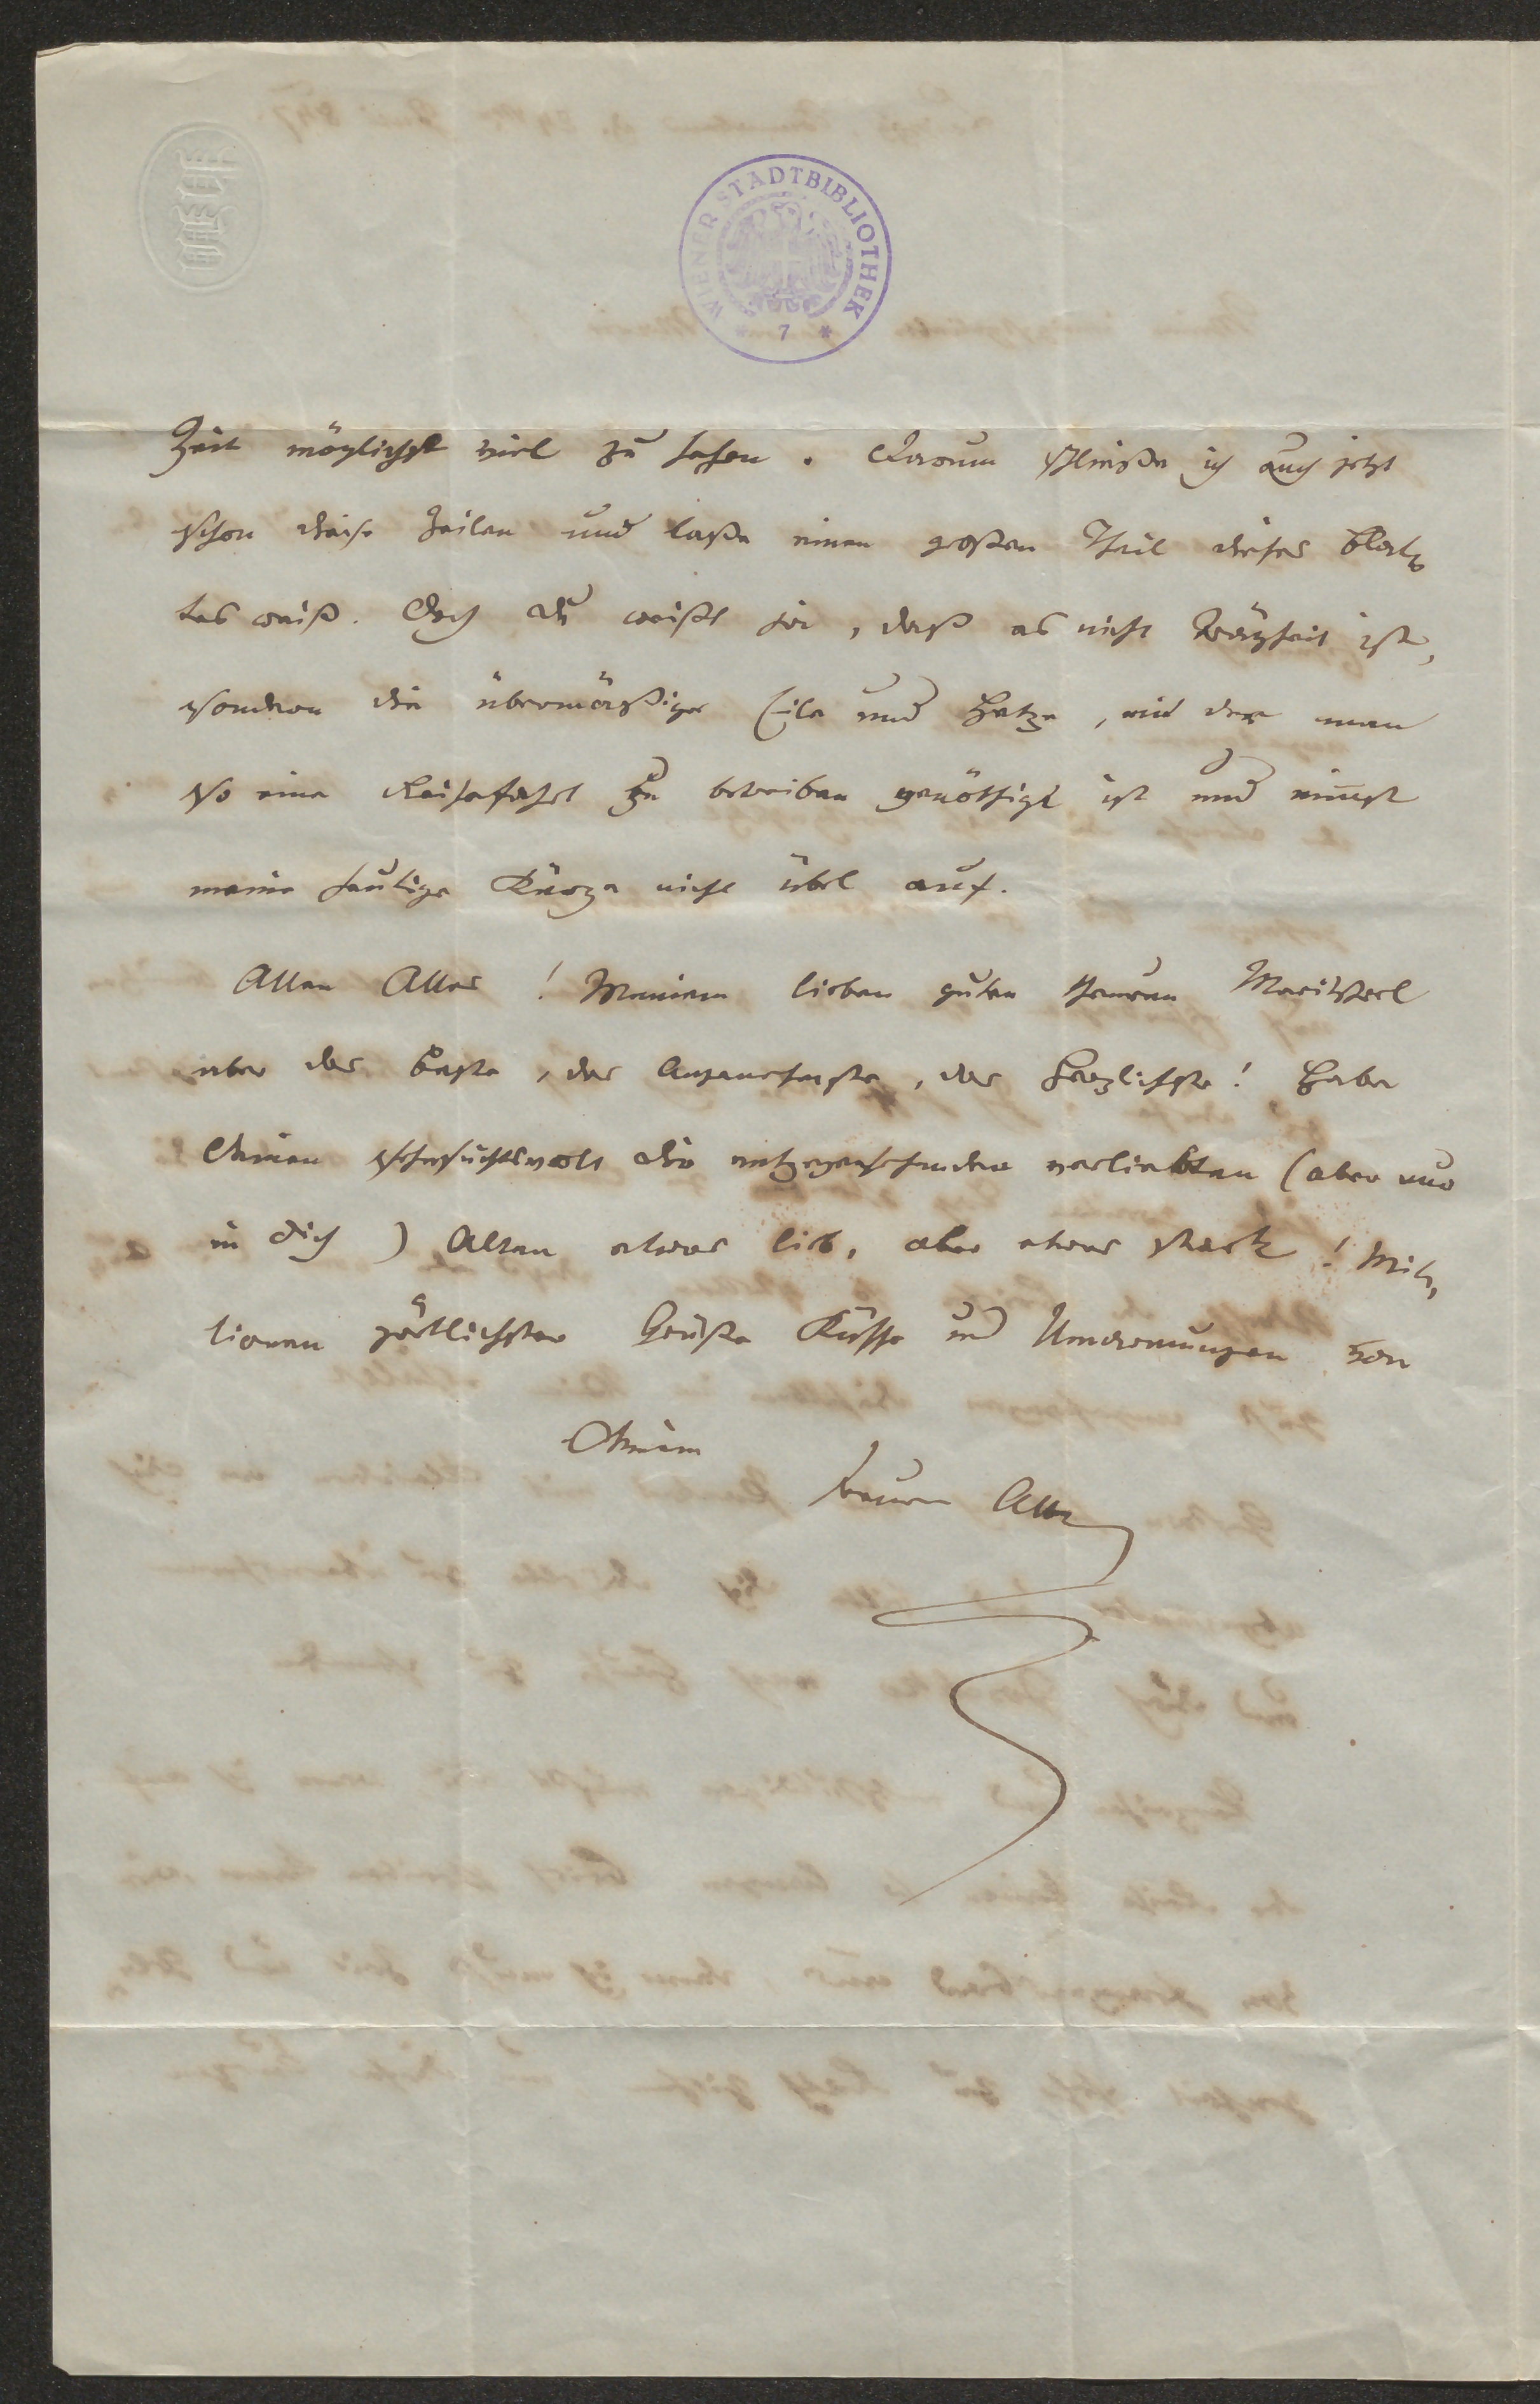 WIENER STADTBIBLIOTHEK
* 7 *
Zeit möglichst viel zu sehen. Darum schließe ich auch jetzt
schon diese Zeilen und laße einen großen Theil dieses Blat-
tes weiß. Doch Du weißt ja, daß es nicht Trägheit ist,
sondern die übermäßige Eile und Hetze, mit der man
so eine Reisefahrt zu betreiben genöthigt ist und nimmst
meine heutige Kürze nicht übel auf.
Allen Alles! Meinem lieben guten theuren Maritscherl
aber das Beste, das Angenehmste, das Herzlichste! Habe
Deinen sehnsuchtsvoll Dir entgegensehenden verliebten (aber nur
in Dich) Alten etwas lieb, aber etwas stark! Mil-
lionen zärtlichster Grüße Küsse und Umarmungen von
Deinem
treuen Alten